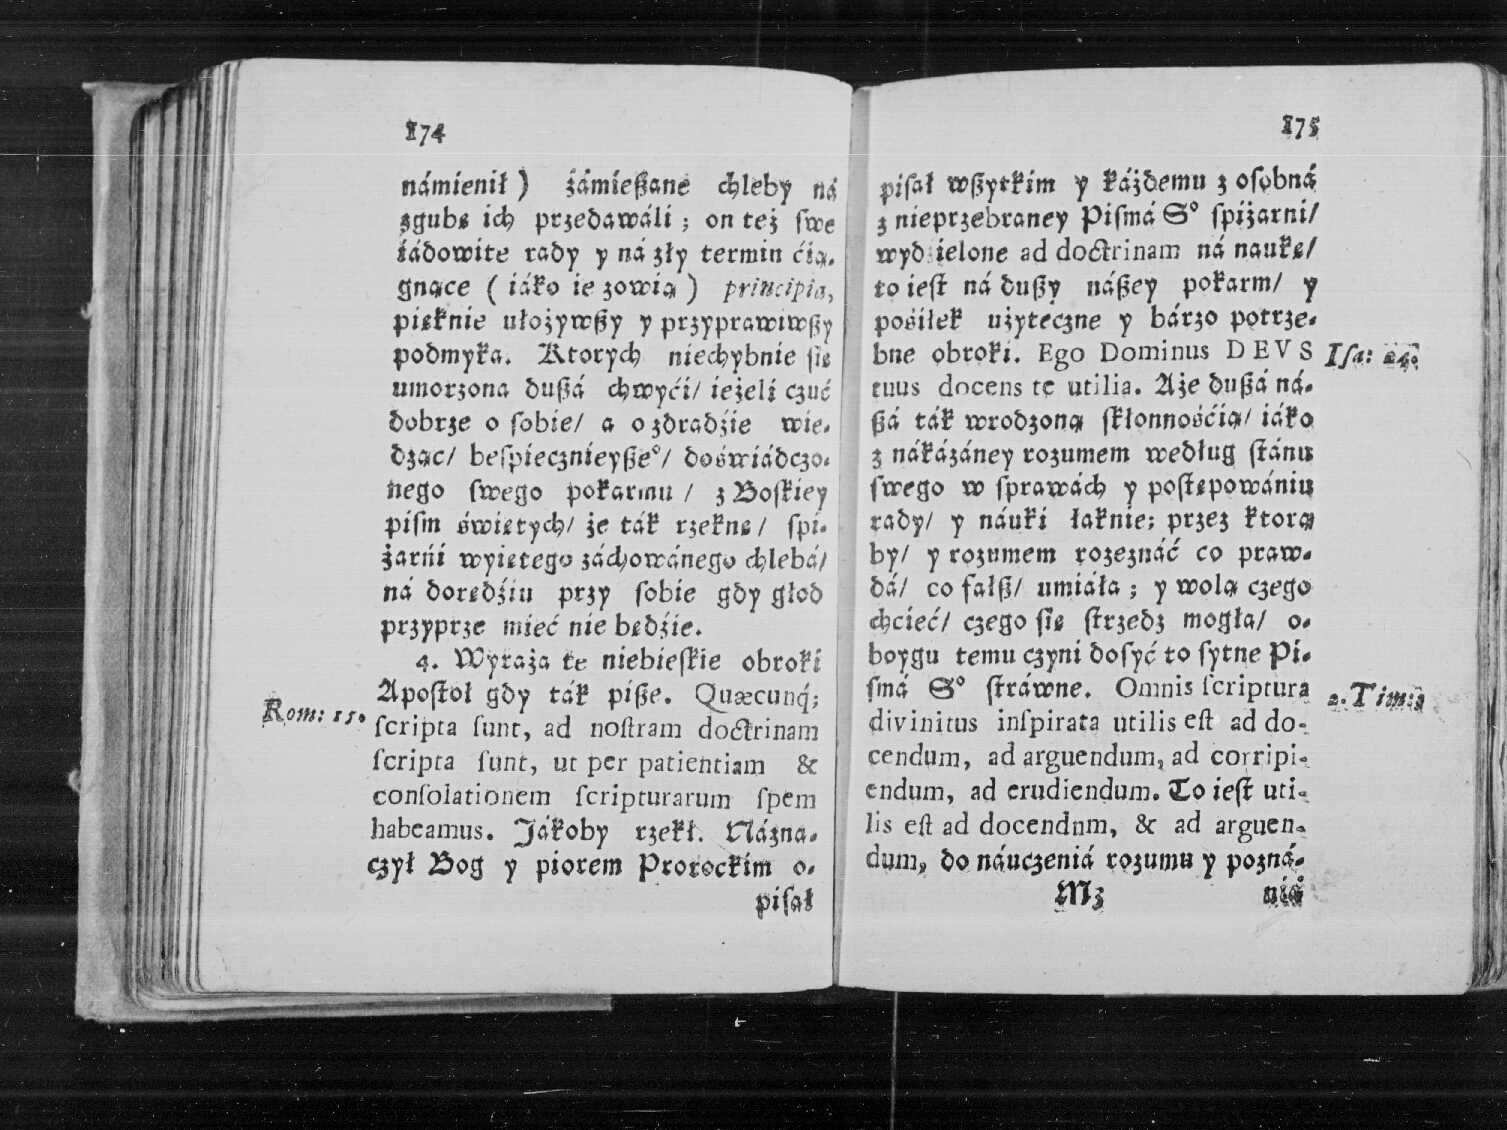 174
námienił) zámießane chleby ná
zgubę ich przedawáli; on też swe
iádowite rady y ná zły termin ćią-
gnące (iáko ie zowią) principia,
pięknie ułożywßy y przyprawiwßy
podmyka. Ktorych niechybnie się
umorzona dußá chwyći/ ieżeli czuć
dobrze o sobie/ a o zdradźie wie-
dząc/ bespiecznieyße°/ doświádczo-
nego swego pokarmu/ z Boskiey
pism świętych/ że ták rzeknę/ spi-
żarńi wyiętego záchowánego chlebá/
ná dorędźiu przy sobie gdy głod
przyprze mieć nie będźie.
4. Wyraża te niebieskie obroki
Apostoł gdy ták piße. Quæcunq́;
Rom: 15.
scripta sunt, ad nostram doctrinam
scripta sunt, ut per patientiam &
consolationem scripturarum spem
habeamus. Jákoby rzekł. Názna-
czył Bog y piorem Prorockim o-
pisał
175
pisał wßytkim y káżdemu z osobná
z nieprzebraney Pismá S° spiżarni/
wydzielone ad doctrinam ná naukę/
to iest ná dußy náßey pokarm/ y
pośiłek użyteczne y bárzo potrze-
bne obroki. Ego Dominus DEVS
Isa:
tuus docens te utilia. Aże dußá ná-
ßá ták wrodzoną skłonnośćią/ iáko
z nákázáney rozumem według stánu
swego w sprawách y postępowániu
rady/ y náuki łaknie; przez ktorą
by/ y rozumem rozeznáć co praw-
dá/ co fałß/ umiáła; y wolą czego
chcieć/ czego się strzedz mogła/ o-
boygu temu czyni dosyć to sytne Pi-
smá S° stráwne. Omnis scriptura
2. Tim: 3
divinitus inspirata utilis est ad do-
cendum, ad arguendum, ad corripi-
endum, ad erudiendum. To iest uti-
lis est ad docendnm, & ad arguen-
dum, do náuczeniá rozumu y pozná-
M3
niá